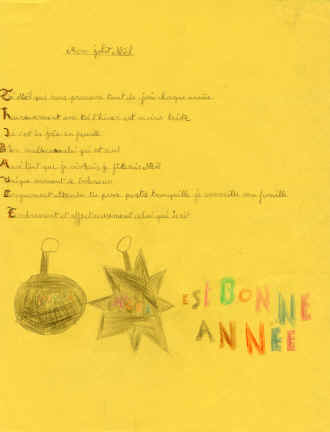 Mon joli Noël
Noël que nous procure tant de joie chaque année
Heureusement avec toi l'hiver est moins triste
Ici c'est la fête en famille
Bien qui est seul
Aussi tant que je je fêterai Noël
Unique moment de bonheur
Longuement attendu tu peux partir tranquille je surveille ma famille
Tendrement et affectueusement celui qui écrit
EST BONNE
ANNÉE